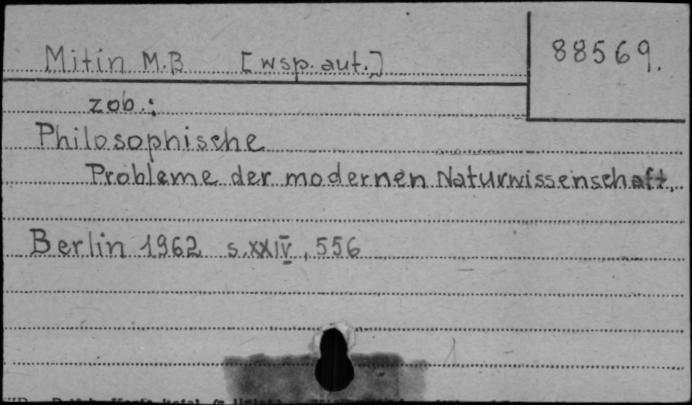 Mitin M.B [wsp. aut.]
88569.
zob.:
Philosophische
Probleme der modernen Naturwissenschaft.
Berlin 1962 s.XXIV, 556